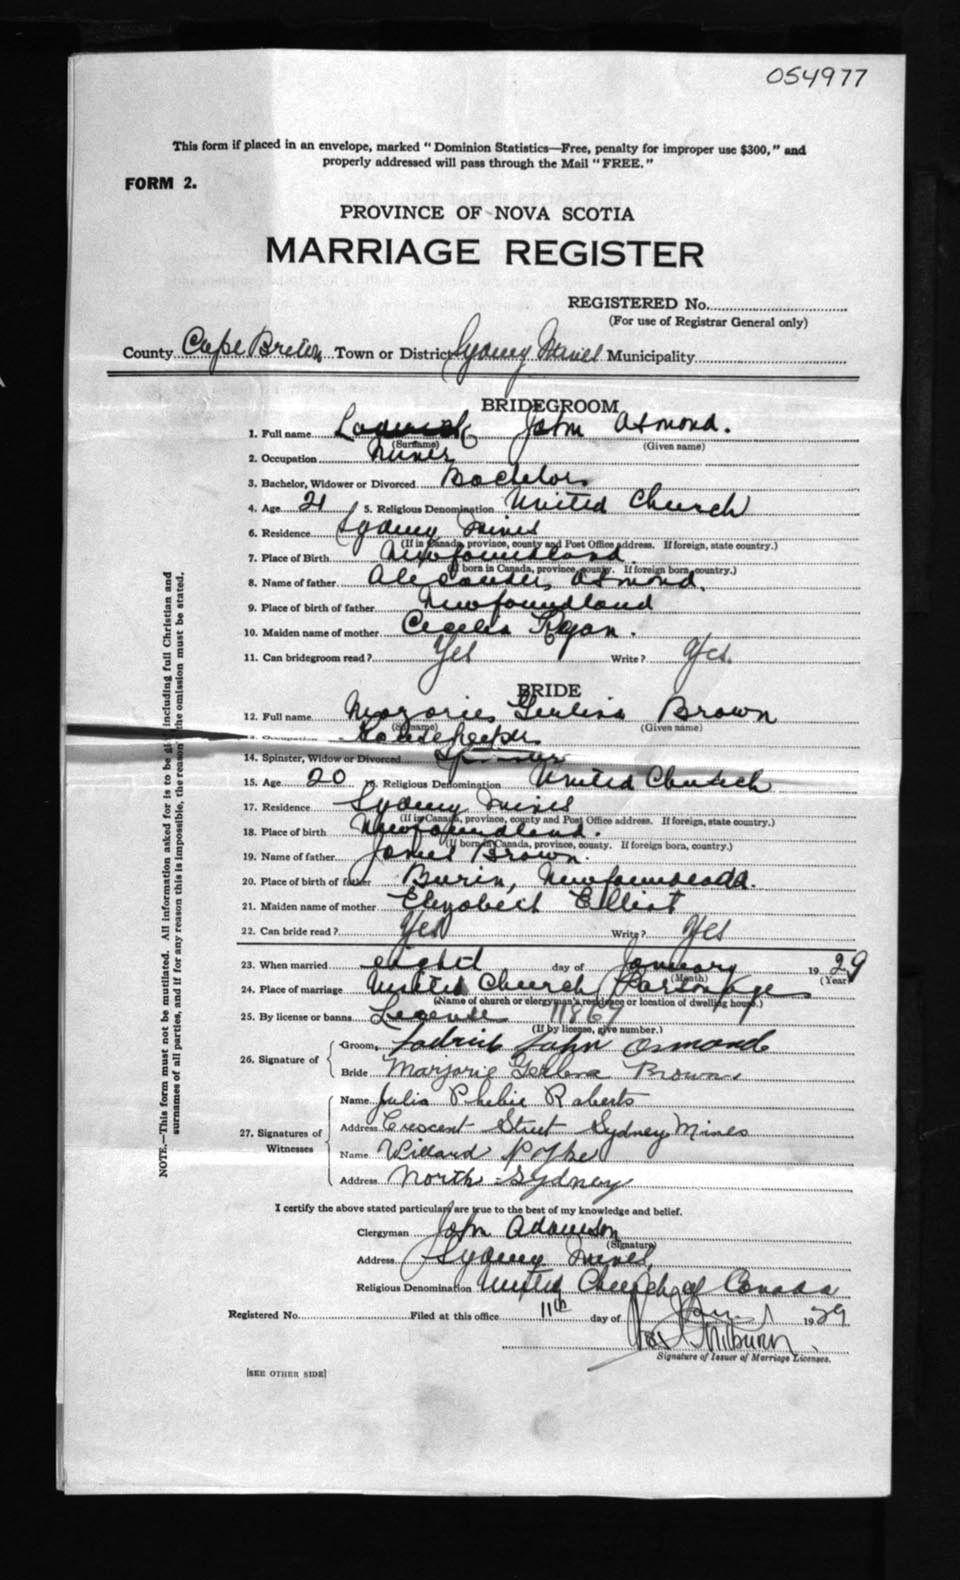 054977
This form if placed in an envelope, marked "Dominion Statistics—Free, penalty for improper use $300," and
properly addressed will pass through the Mail "FREE."
FORM 2.
PROVINCE OF NOVA SCOTIA
MARRIAGE REGISTER
REGISTERED No.
(For use of Registrar General only)
County Cape Breton Town or District Sydney Mines Municipality
BRIDEGROOM
1. Full name John Osmond.
(Surname) (Given name)
2. Occupation Miner
3. Bachelor, Widower or Divorced Bachelor
4. Age 21 5. Religious Denomination United Church
6. Residence Sydney Mines
(If in Canada, province, county and Post Office address. If foreign, state country.)
7. Place of Birth Newfoundland.
(If born in Canada, province, county. If foreign born, country.)
8. Name of father Alexander Osmond.
9. Place of birth of father Newfoundland
10. Maiden name of mother Cecelia Ryan.
11. Can bridegroom read? Yes Write? Yes.
BRIDE
12. Full name Marjorie Brown
(Surname) (Given name)
Occupation Housekeeper
14. Spinster, Widow or Divorced Spinster
15. Age 20 Religious Denomination United Church
17. Residence Sydney Mines
(If in Canada, province, county and Post Office address. If foreign, state country.)
18. Place of birth Newfoundland.
(If born in Canada, province, county. If foreign born, country.)
19. Name of father James Brown.
20. Place of birth of father Burin, Newfoundland.
21. Maiden name of mother Elizabeth Elliot
22. Can bride read? Yes Write? Yes
23. When married eight day of January 1929
(Month) (Year)
24. Place of marriage United Church Parsonage
(Name of church or clergyman's residence or location of dwelling house.)
25. By license or banns License 11867
(If by license, give number.)
26. Signature of
Groom John Osmond
Bride Marjorie Brown
27. Signatures of Witnesses
Name Julia Phebie Roberts
Address Crescent Street Sydney Mines
Name Willard
Address North Sydney
I certify the above stated particulars are true to the best of my knowledge and belief.
Clergyman John Adamson
(Signature)
Address Sydney Mines.
Religious Denomination United Church of Canada
Registered No. Filed at this office 11th day of Jan 1929
Signature of Issuer of Marriage Licenses.
[SEE OTHER SIDE]
NOTE.—This form must not be mutilated. All information asked for is to be including full Christian and
surnames of all parties, and if for any reason this is impossible, the reason the omission must be stated.